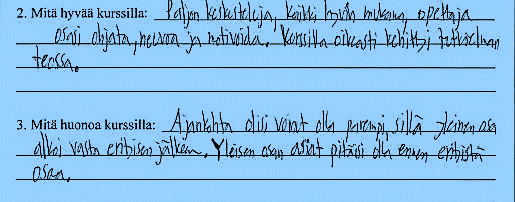 2. Mitä hyvää kurssilla: Paljon keskusteluja, kaikki hyvin mukana, opettaja
osasi ohjata, neuvoa ja motivoida. Kurssilla oikeasti kehittyi tutkielman
teossa.
3. Mitä huonoa kurssilla: Ajankohta olisi voinut olla parempi, sillä yleinen osa
alkoi vasta erityisen jälkeen. Yleisen osan asiat pitäisi olla ennen erityistä
osaa.